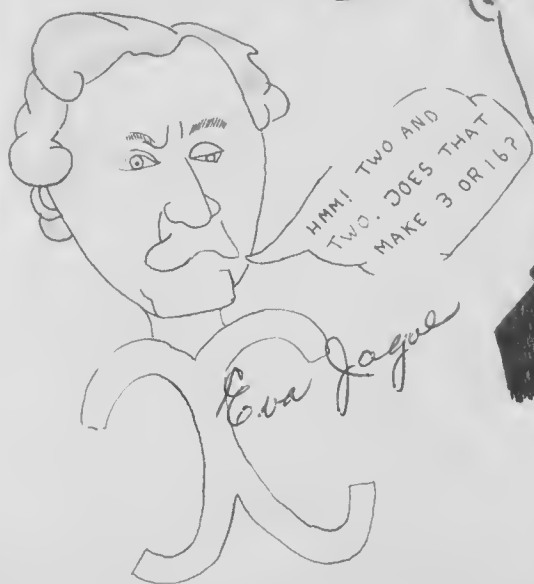 HMM! TWO AND
TWO. DOES THAT
MAKE 3 OR 16?
Eva Jague